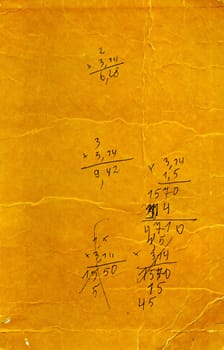 2
× 3,14
6,28
3
× 3,14
9,42
× 3,14
1,5
1570
314
4,710
1,5
× 3,14
1550
5
4,5
× 3,14
1570
15
45